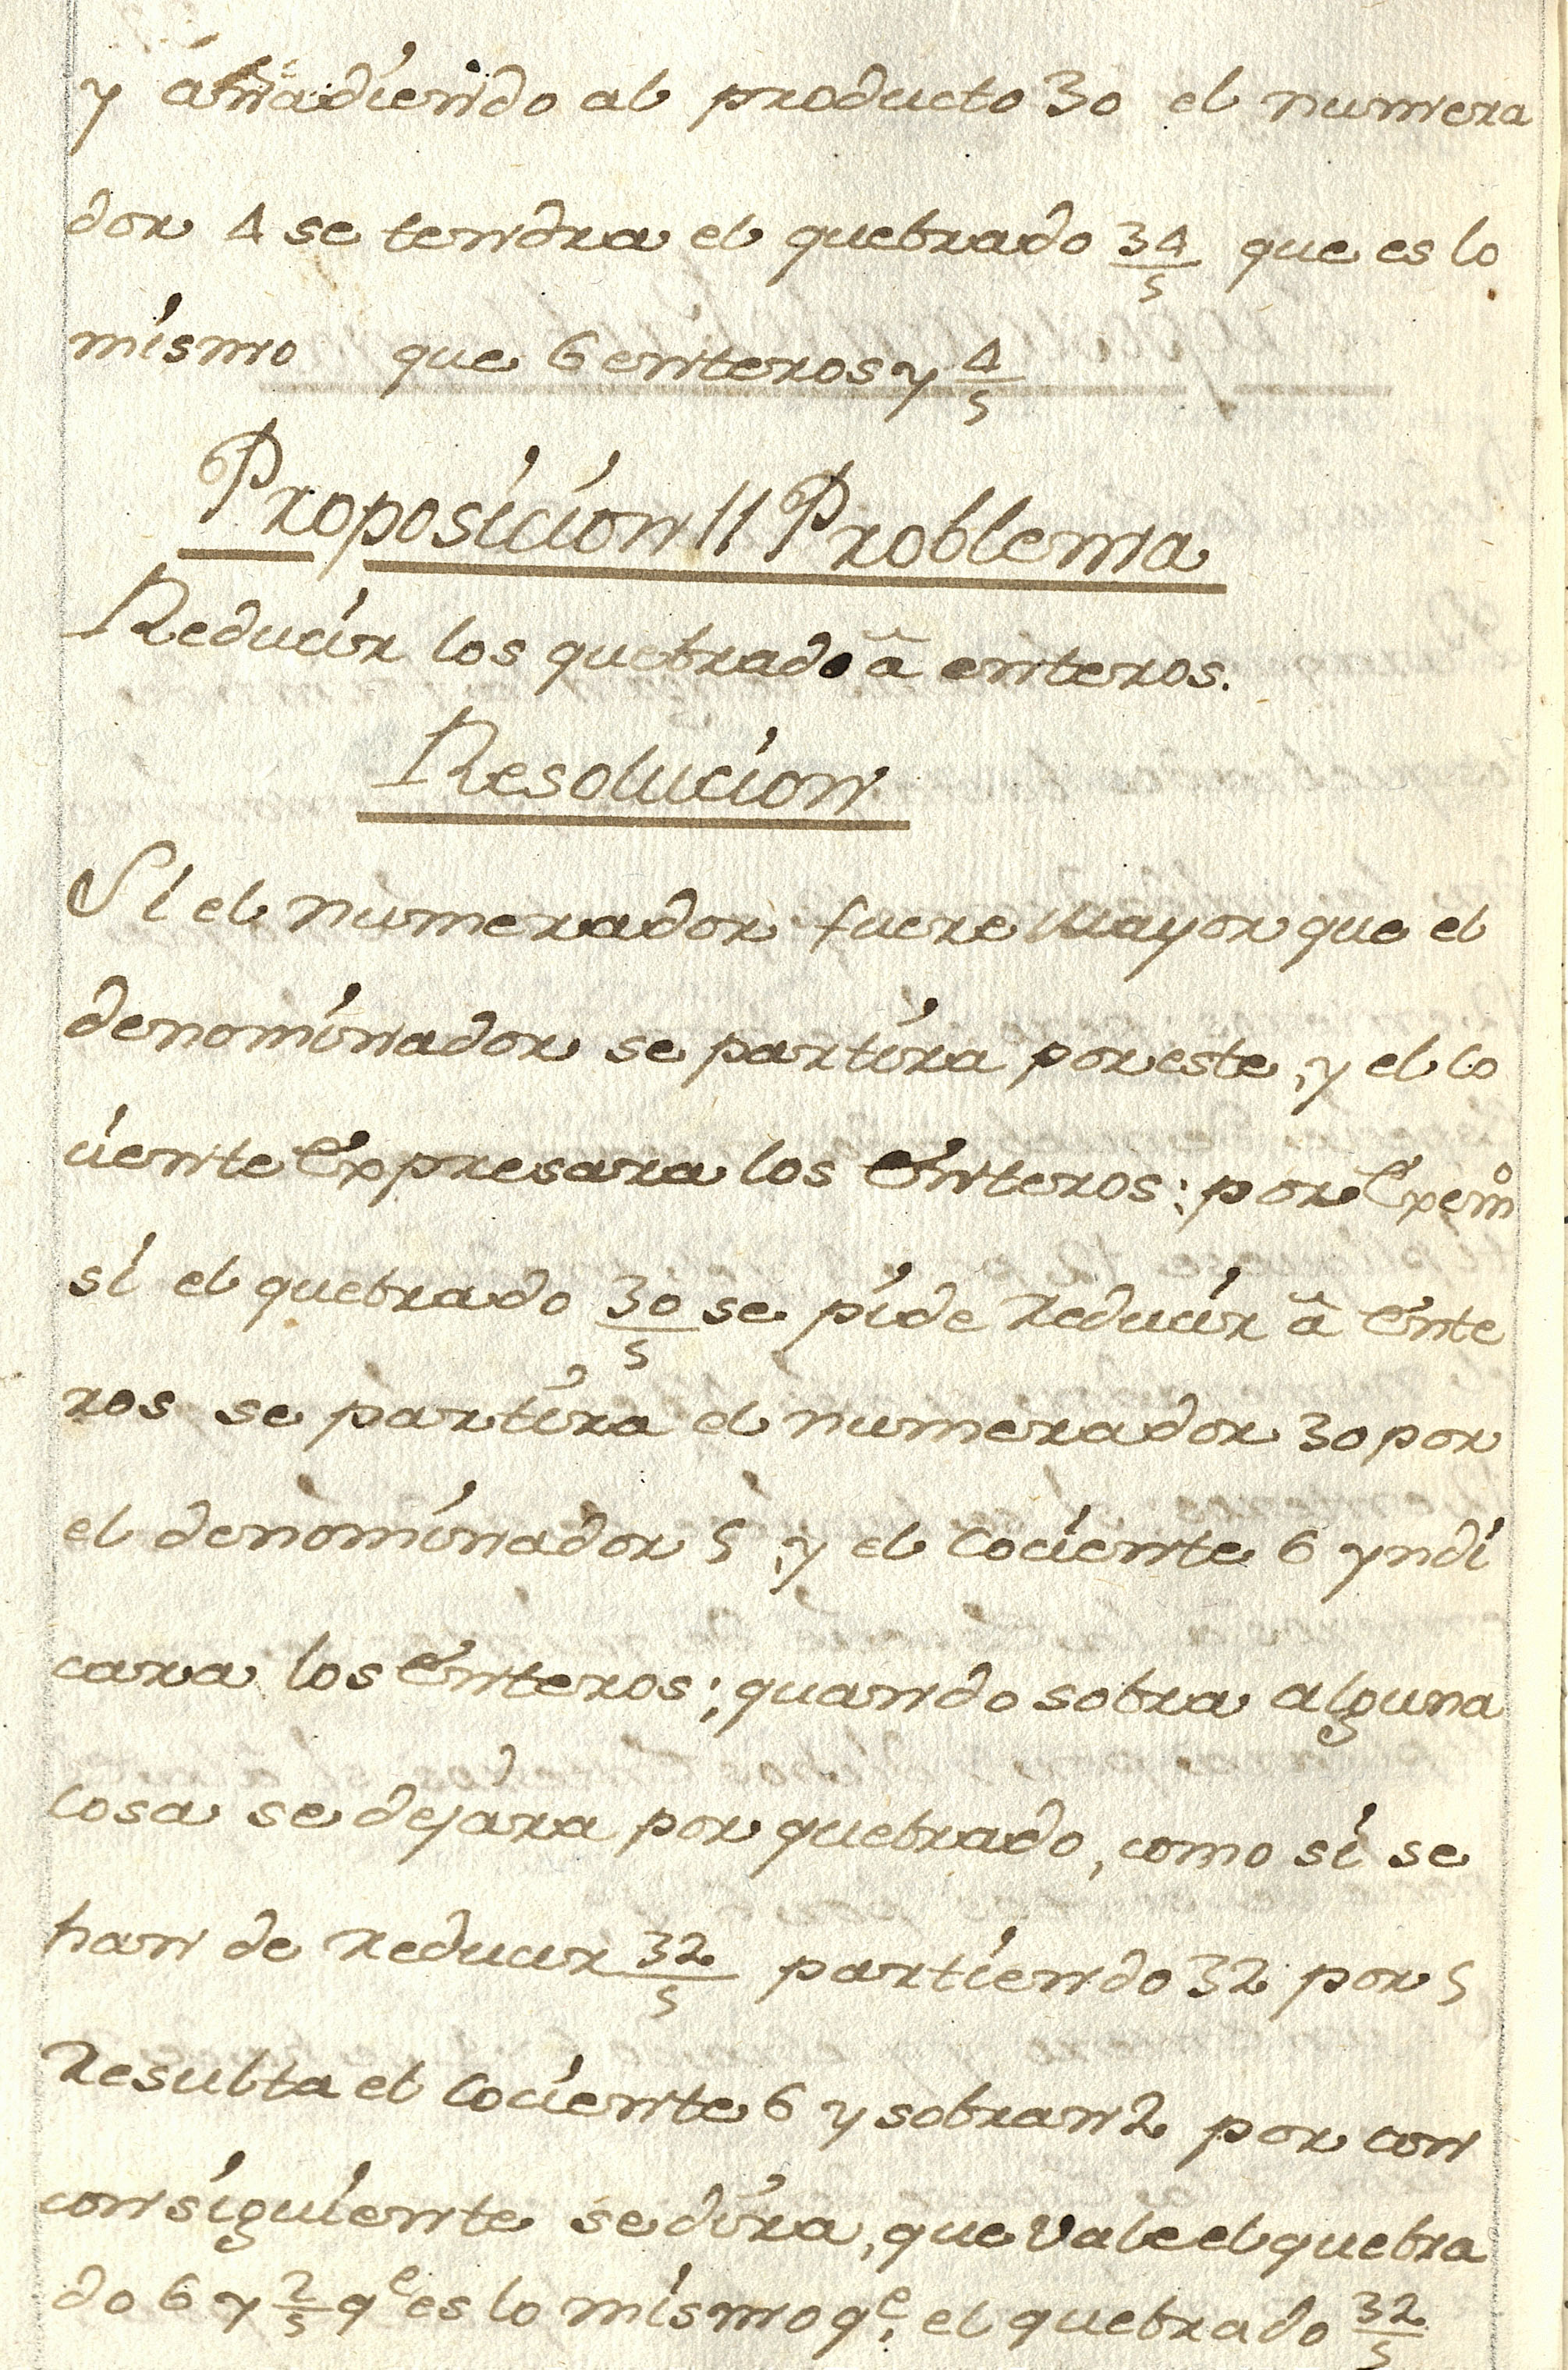 y añadiendo al producto 30 el numera
dor 4 se tendra el quebrado 34/5 que es lo
mismo que 6 enteros y 4/5
Proposicion 11 Problema
Reducir los quebrado â enteros.
Resolucion
Si el numerador fuere Mayor que el
denominador se partira por este, y el co
ciente Expresara los Enteros: por Exemº
si el quebrado 30/5 se pide Reducir â Ente
ros se partira el numerador 30 por
el denominador 5, y el Cociente 6 yndi
cara los Enteros; quando sobra alguna
cosa se dejara por quebrado, como si se
han de Reducir 32/5 partiendo 32 por 5
Resulta el Cociente 6 y sobran 2 por con
consiguiente se dira, que Vale el quebra
do 6 y 2/5 qᵉ es lo mismo qᵉ, el quebrado 32/5